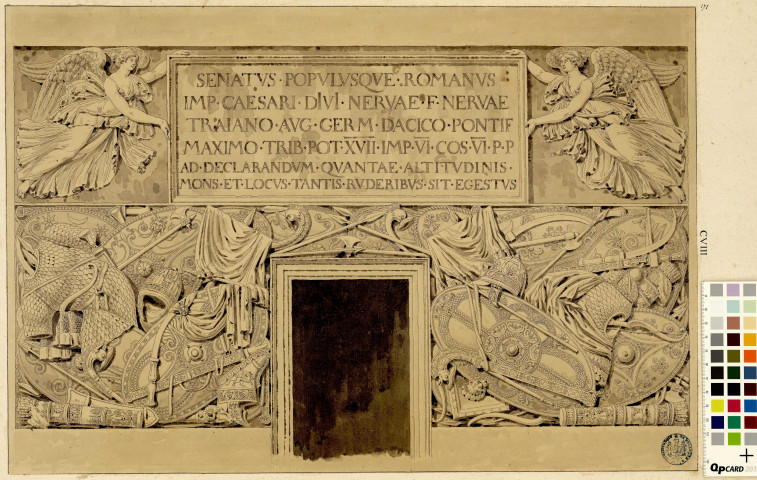 SENATVS·POPVLVSQVE·ROMANVS
IMP·CAESARI·DIVI·NERVAE·F·NERVAE
TRAIANO·AVG·GERM·DACICO·PONTIF
MAXIMO·TRIB·POT·XVII·IMP·VI·COS·VI·P·P
AD·DECLARANDVM·QVANTAE·ALTITVDINIS·
MONS·ET·LOCVS·TANTIS·RVDERIBVS·SIT·EGESTVS
CVIII
QPCARD 201